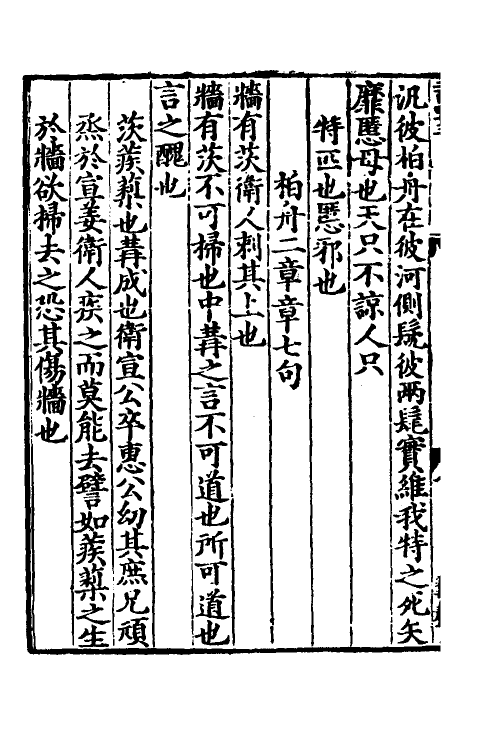 汎彼柏舟在彼河側髧彼兩髦實維我特之死矢
靡慝母也天只不諒人只
特匹也慝邪也
柏舟二章章七句
牆有茨衛人刺其上也
牆有茨不可掃也中冓之言不可道也所可道也
言之醜也
茨蒺䔧也冓成也衛宣公卒惠公幼其庶兄頑
烝於宣姜衛人疾之而莫能去譬如蒺䔧之生
於牆欲掃去之恐其傷牆也